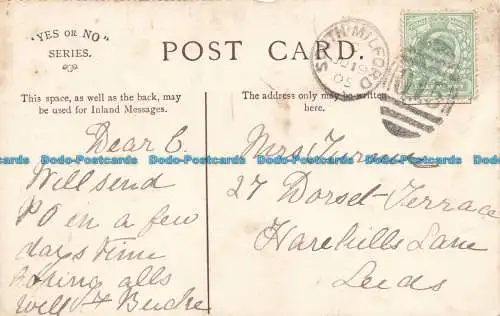 "YES or NO"
SERIES.
POST CARD.
SOUTH MILFORD
05
This space, as well as the back, may
be used for Inland Messages.
The address only may be written
here.
Dear C.
Will send
PO in a few
days time
hoping alls
well
Mrs Turner
27 Dorset Terrace
Harehills Lane
Leeds
Dodo-Postcards Dodo-Postcards Dodo-Postcards Dodo-Postcards